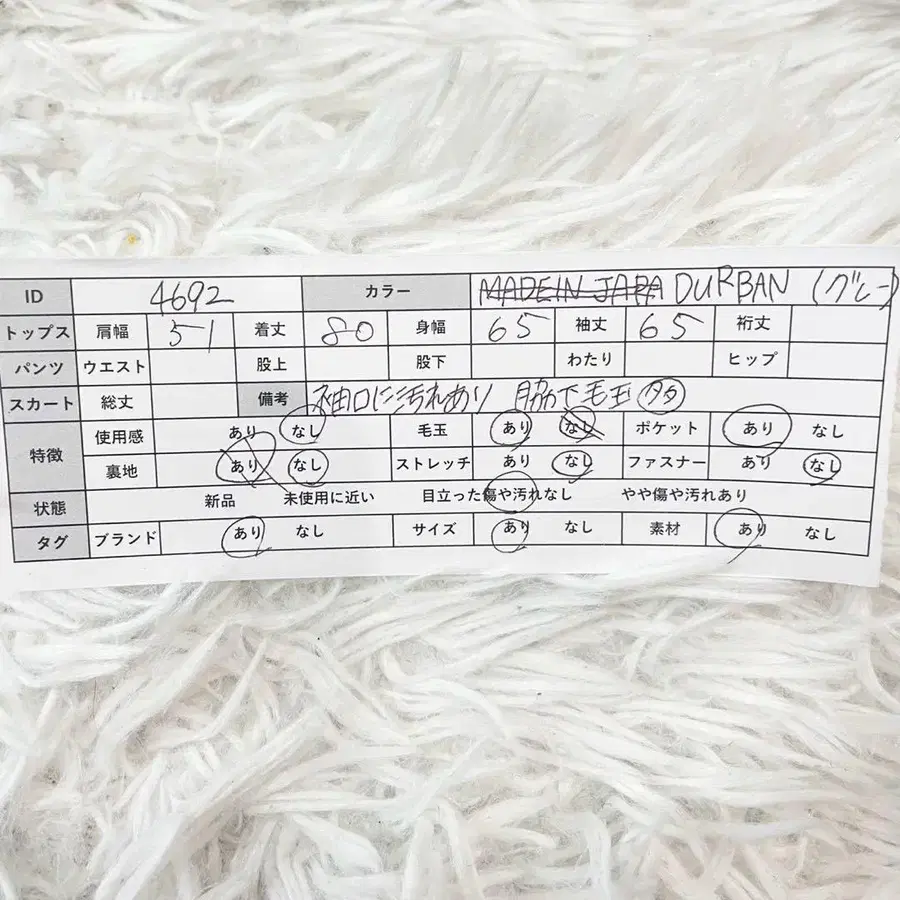 ID 4692 カラー MADE IN JAPA DURBAN (グレー)
トップス 肩幅 51 着丈 80 身幅 65 袖丈 65 裄丈
パンツ ウエスト 股上 股下 わたり ヒップ
スカート 総丈 備考 袖口に汚れあり 脇下毛玉
特徴 使用感 あり なし 毛玉 あり なし ポケット あり なし
裏地 あり なし ストレッチ あり なし ファスナー あり なし
状態 新品 未使用に近い 目立った傷や汚れなし やや傷や汚れあり
タグ ブランド あり なし サイズ あり なし 素材 あり なし